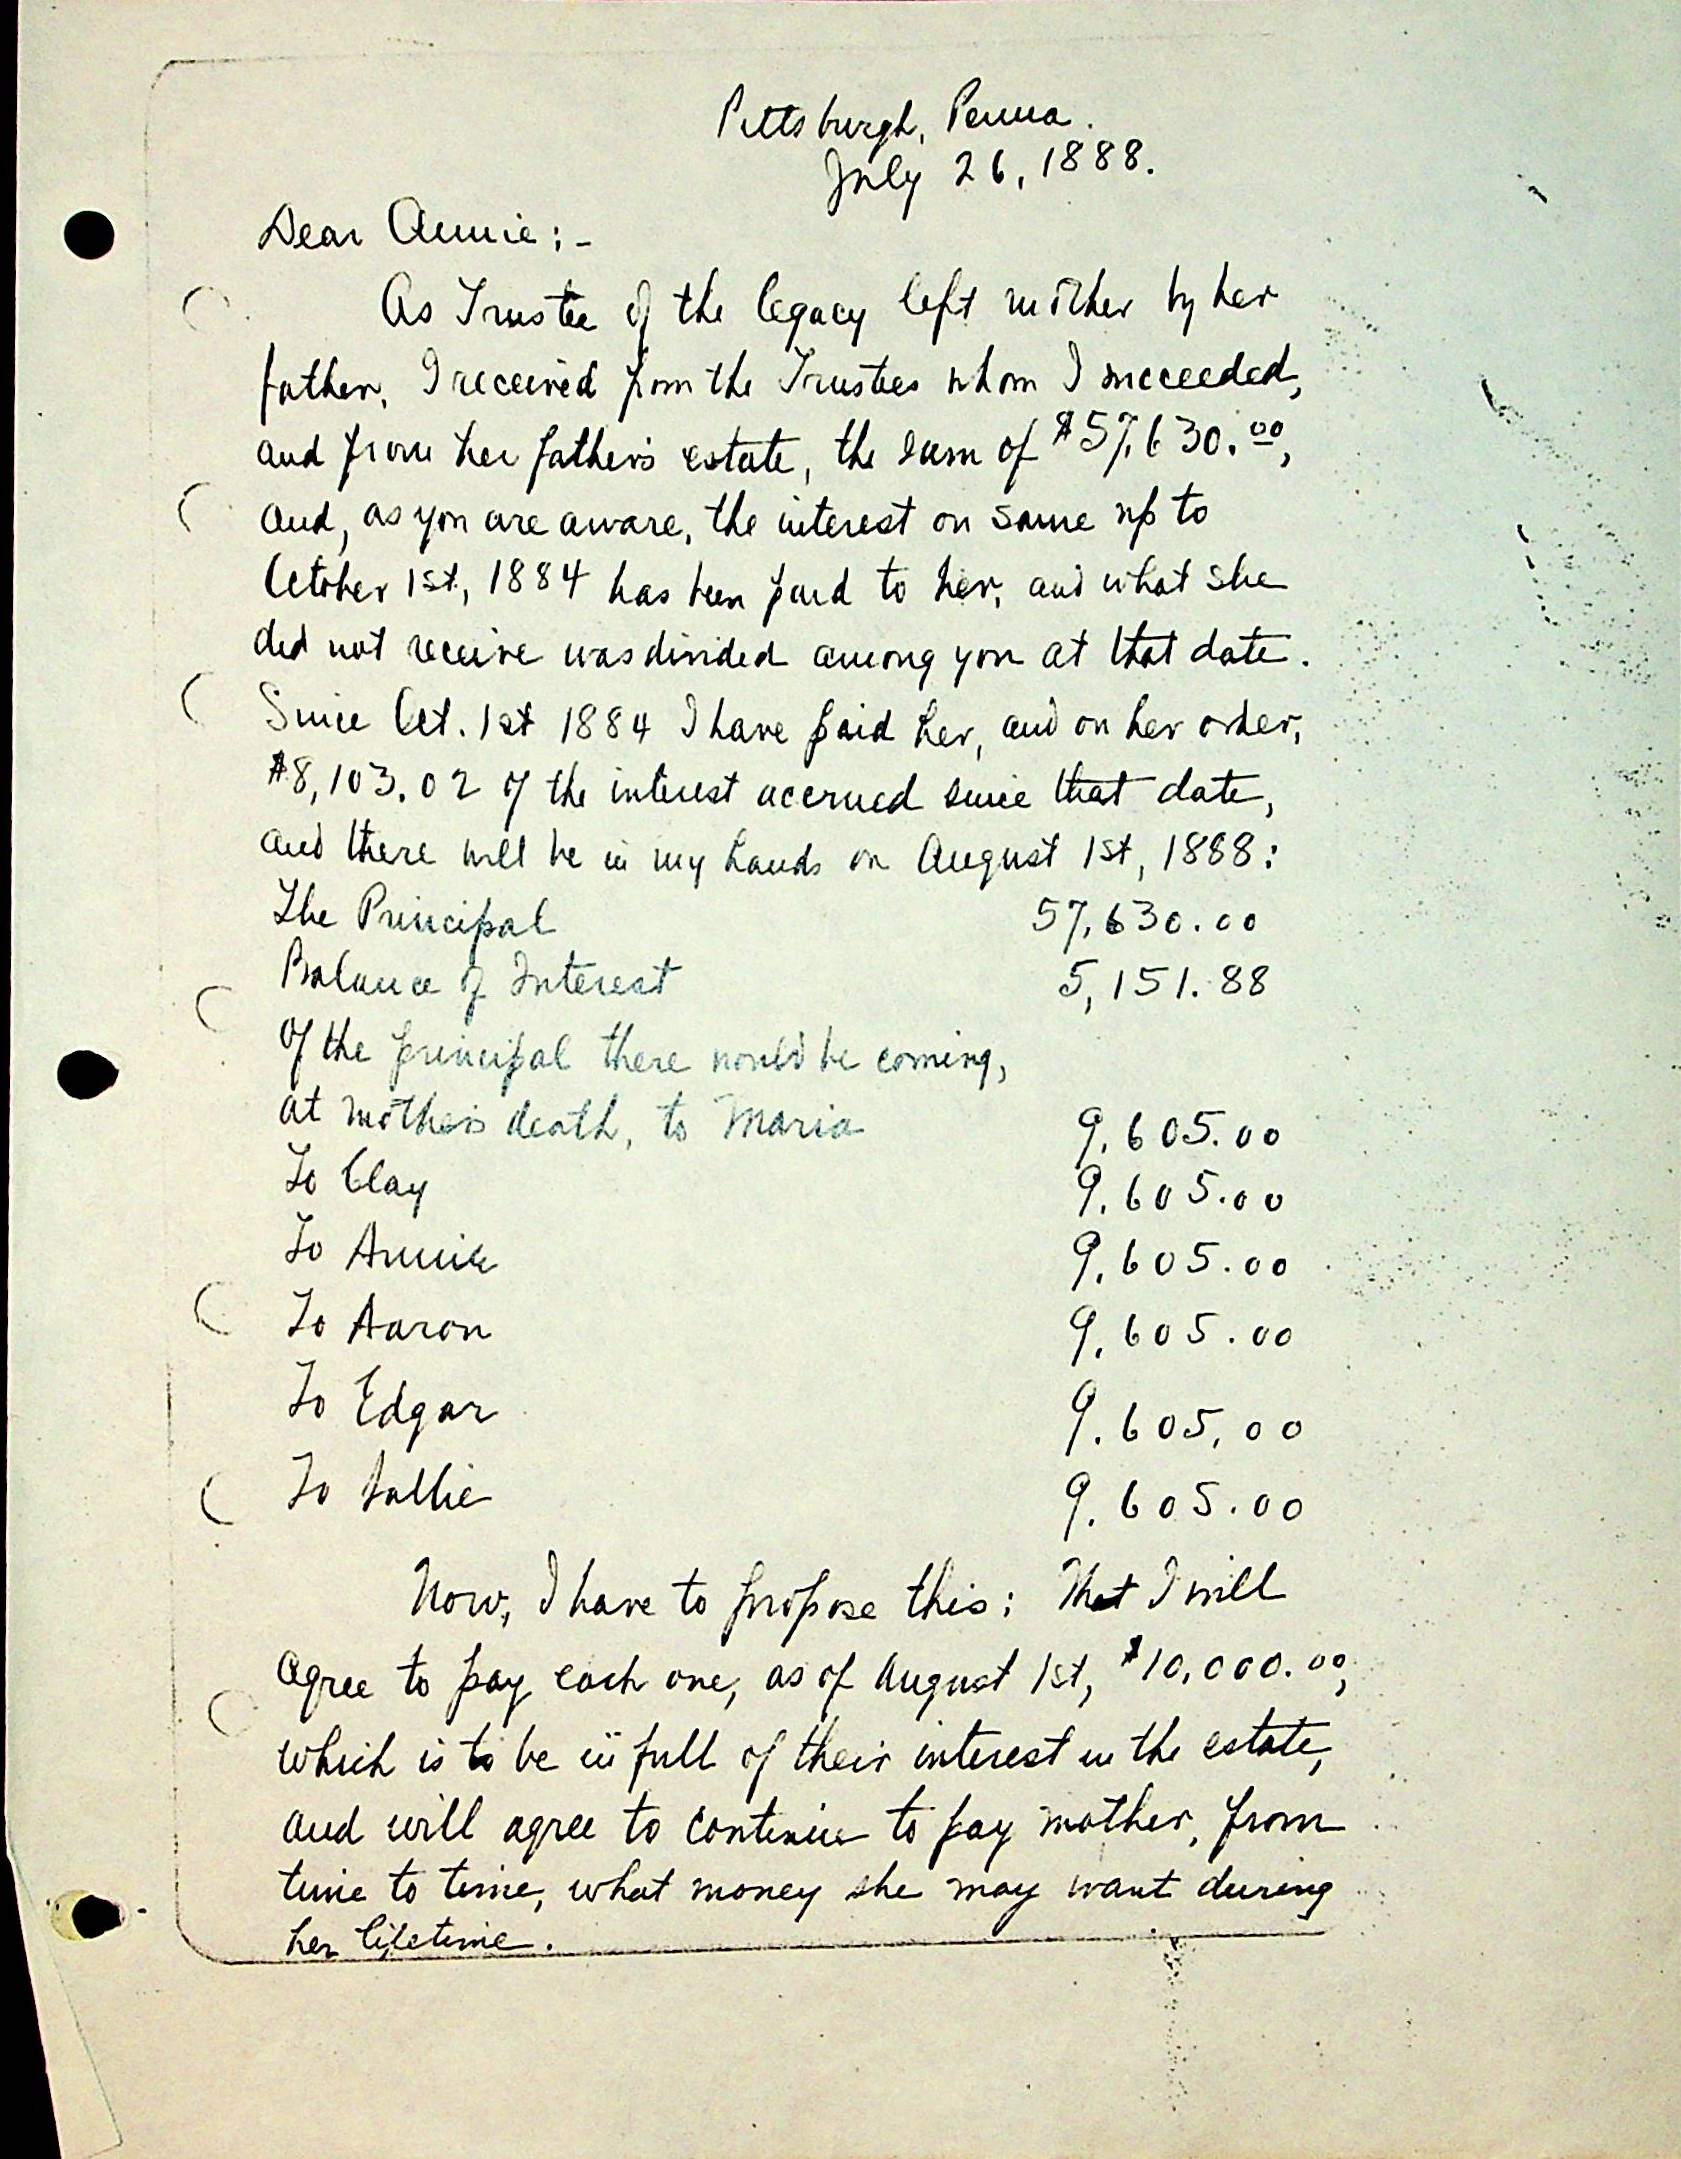 Pittsburgh, Penna.
July 26, 1888.
Dear Annie:-
As Trustee of the legacy left mother by her
father, I received from the Trustees whom I succeeded,
and from her father's estate, the sum of $57,630.00,
and, as you are aware, the interest on same up to
October 1st, 1884 has been paid to her, and what she
did not receive was divided among you at that date.
Since Oct. 1st 1884 I have paid her, and on her order,
$8,103.02 of the interest accrued since that date,
and there will be in my hands on August 1st, 1888:
The Principal 57,630.00
Balance of Interest 5,151.88
Of the principal there would be coming,
at mother's death, to Maria 9,605.00
To Clay 9,605.00
To Annie 9,605.00
To Aaron 9,605.00
To Edgar 9.605,00
To Sallie 9.605.00
Now, I have to propose this: That I will
agree to pay each one, as of August 1st, $10,000.00,
which is to be in full of their interest in the estate,
and will agree to continue to pay mother, from
time to time, what money she may want during
her lifetime.